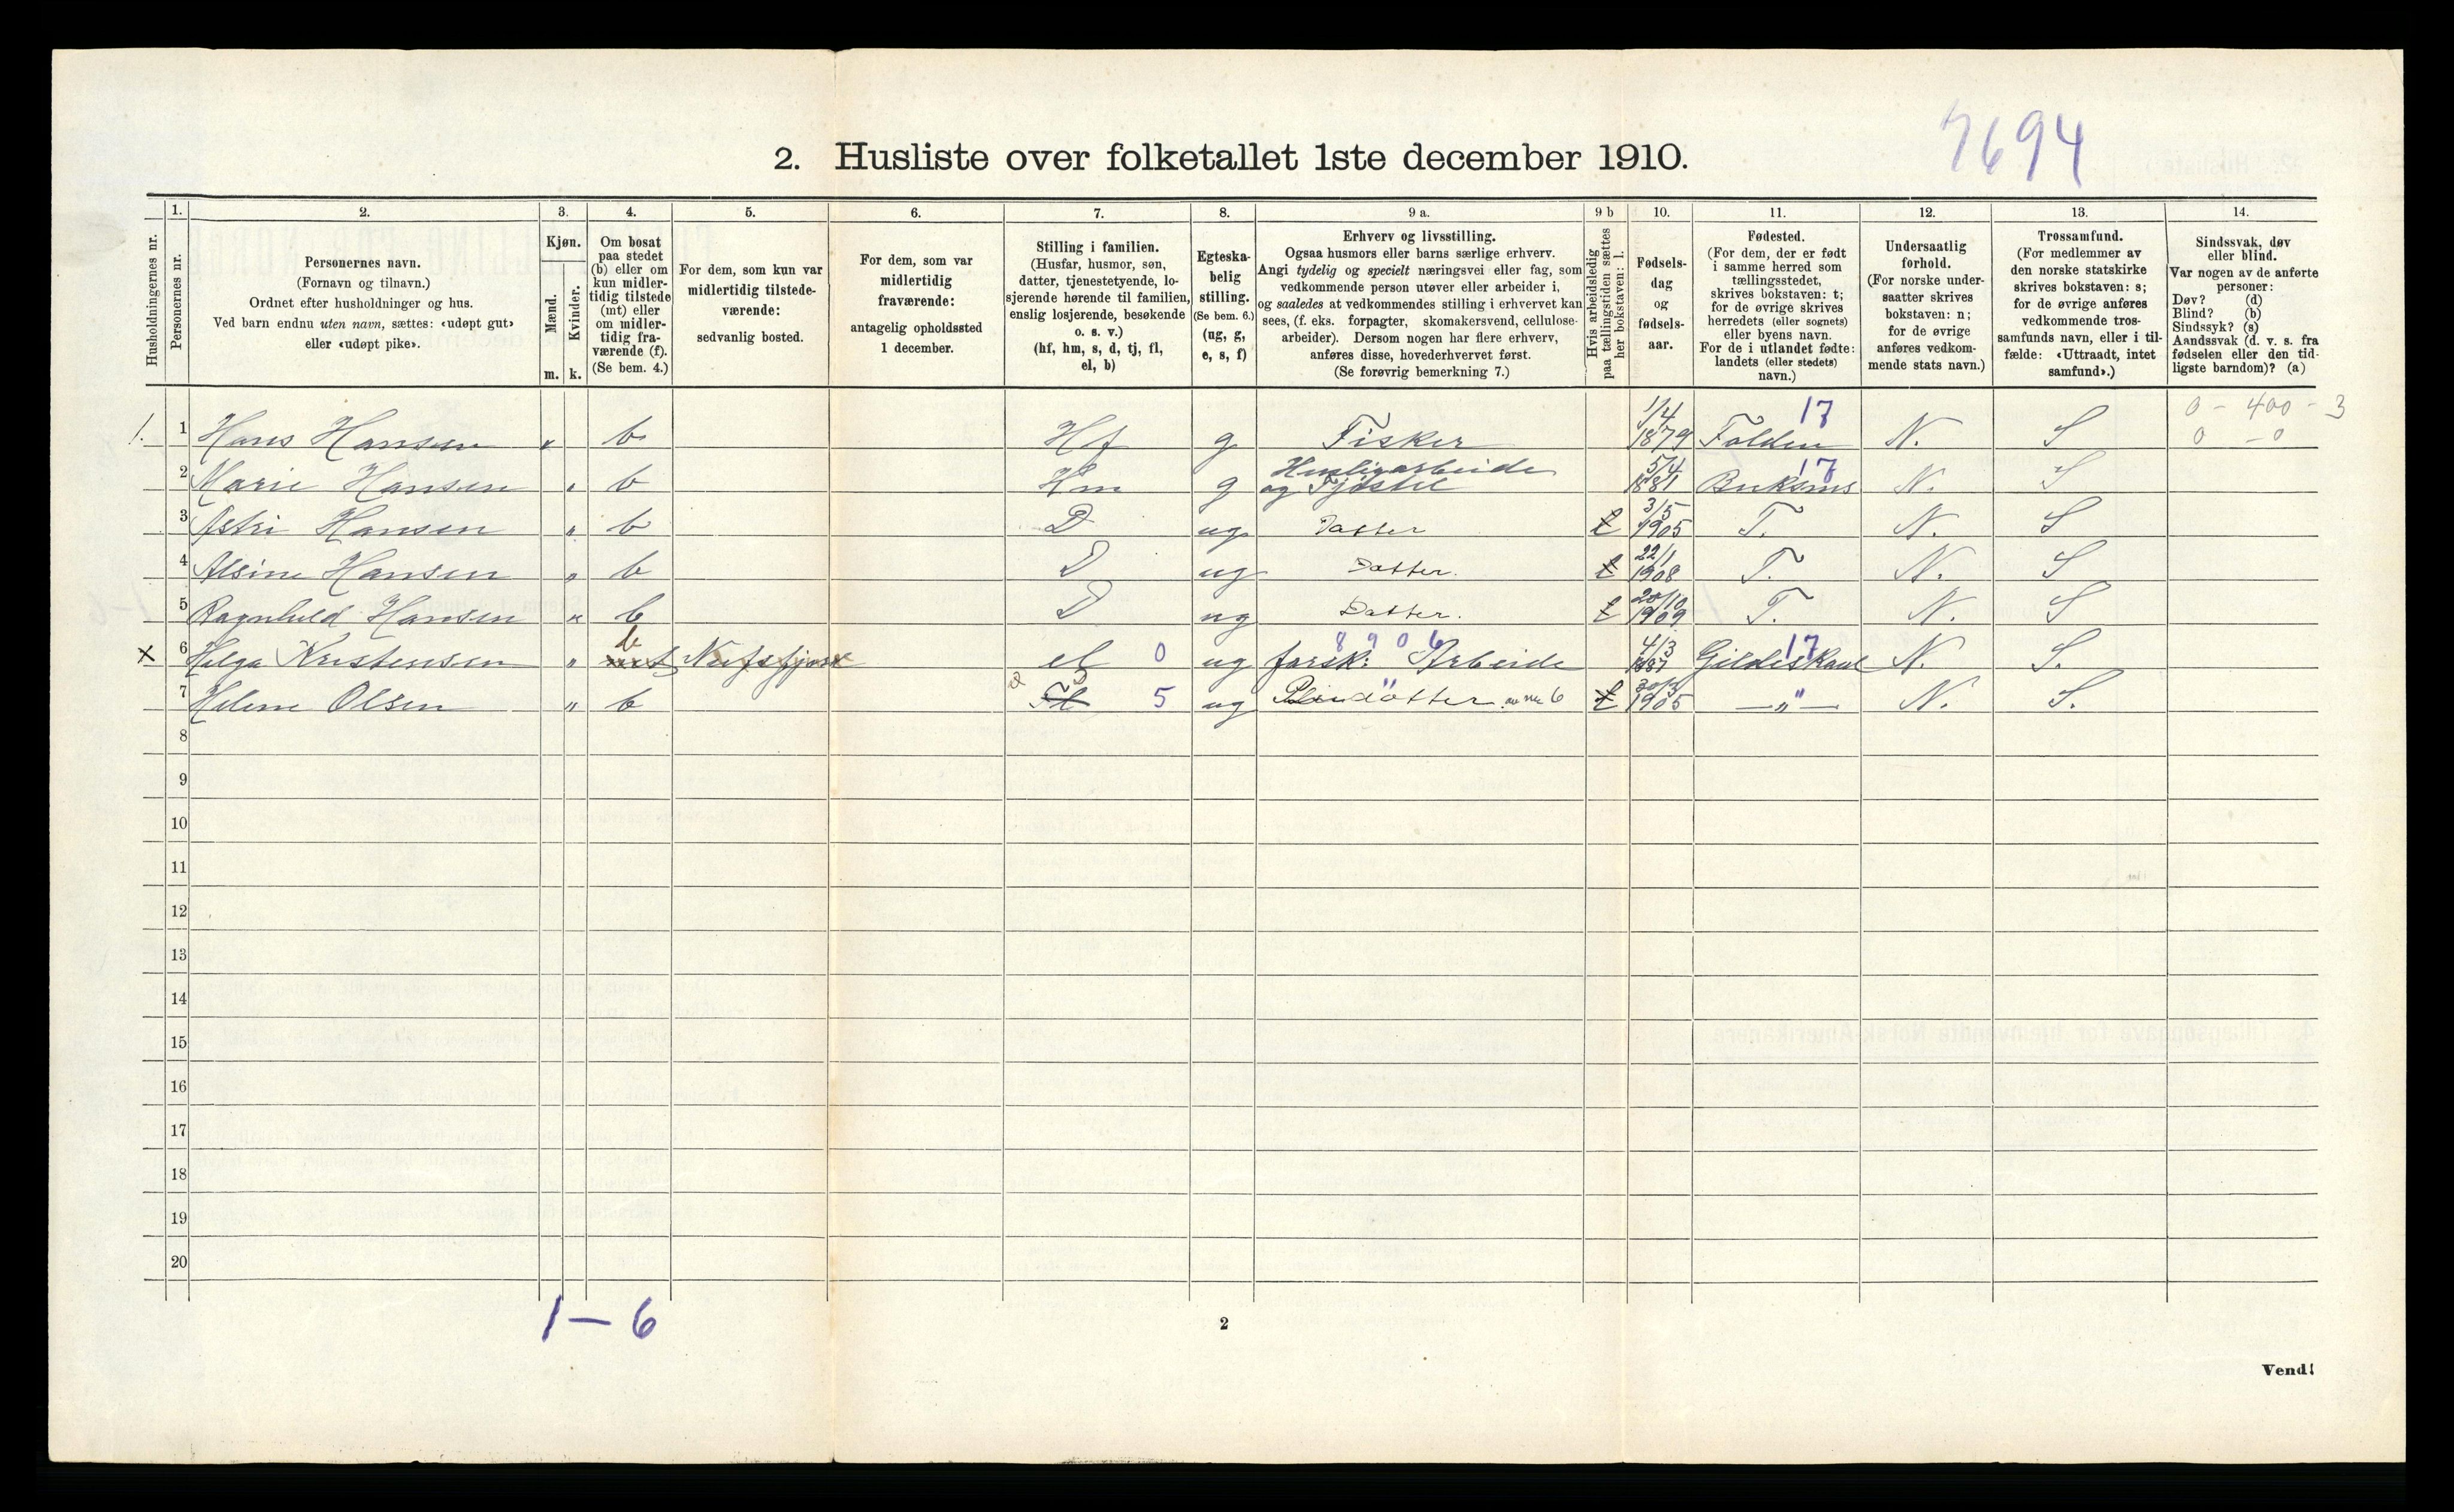 7694
2. Husliste over folketallet 1ste december 1910.
1. 2. 3. 4. 5. 6. 7. 8. 9 a. 9 b 10. 11. 12. 13. 14.
Husholdningernes nr.
Personernes nr.
Personernes navn.
(Fornavn og tilnavn.)
Ordnet efter husholdninger og hus.
Ved barn endnu uten navn, sættes: «udøpt gut»
eller «udøpt pike».
Kjøn.
Mænd.
Kvinder.
m. k.
Om bosat
paa stedet
(b) eller om
kun midler-
tidig tilstede
(mt) eller
om midler-
tidig fra-
værende (f).
(Se bem. 4.)
For dem, som kun var
midlertidig tilstede-
værende:
sedvanlig bosted.
For dem, som var
midlertidig
fraværende:
antagelig opholdssted
1 december.
Stilling i familien.
(Husfar, husmor, søn,
datter, tjenestetyende, lo-
sjerende hørende til familien,
enslig losjerende, besøkende
o. s. v.)
(hf, hm, s, d, tj, fl,
el, b)
Egteska-
belig
stilling.
(Se bem. 6.)
(ug, g,
e, s, f)
Erhverv og livsstilling.
Ogsaa husmors eller barns særlige erhverv.
Angi tydelig og specielt næringsvei eller fag, som
vedkommende person utøver eller arbeider i,
og saaledes at vedkommendes stilling i erhvervet kan
sees, (f. eks. forpagter, skomakersvend, cellulose-
arbeider). Dersom nogen har flere erhverv,
anføres disse, hovederhvervet først.
(Se forøvrig bemerkning 7.)
Hvis arbeidsledig
paa tællingstiden sættes
her bokstaven: l.
Fødsels-
dag
og
fødsels-
aar.
Fødested.
(For dem, der er født
i samme herred som
tællingsstedet,
skrives bokstaven: t;
for de øvrige skrives
herredets (eller sognets)
eller byens navn.
For de i utlandet fødte:
landets (eller stedets)
navn.)
Undersaatlig
forhold.
(For norske under-
saatter skrives
bokstaven: n;
for de øvrige
anføres vedkom-
mende stats navn.)
Trossamfund.
(For medlemmer av
den norske statskirke
skrives bokstaven: s;
for de øvrige anføres
vedkommende tros-
samfunds navn, eller i til-
fælde: «Uttraadt, intet
samfund».)
Sindssvak, døv
eller blind.
Var nogen av de anførte
personer:
Døv? (d)
Blind? (b)
Sindssyk? (s)
Aandssvak (d. v. s. fra
fødselen eller den tid-
ligste barndom)? (a)
1/4 17 0 - 400 - 3
1. 1 Hans Hansen " b Hf g Fisker 1879 Folden N. S 0 - 0
Husligarbeide 5/4 17
2 Marie Hansen " b Hm g og Fjøstel 1881 Buksnes N. S
3/5
3 Astri Hansen " b D ug Datter l 1905 T. N. S
22/1
4 Alsine Hansen " b D ug Datter. l 1908 T. N. S
20/10
5 Ragnhild Hansen " b D ug Datter. l 1909 T. N. S
b 8906 4/3 17
x 6 Helga Kristensen " mt Nufsfjord el 0 ug forsk: Arbeide 1887 Gildeskaal N. S.
7 Helene Olsen " b Fl 5 ug datter av no 6 l 1905 — " — N. S.
8
9
10
11
12
13
14
15
16
17
18
19
20
1 — 6
2
Vend!